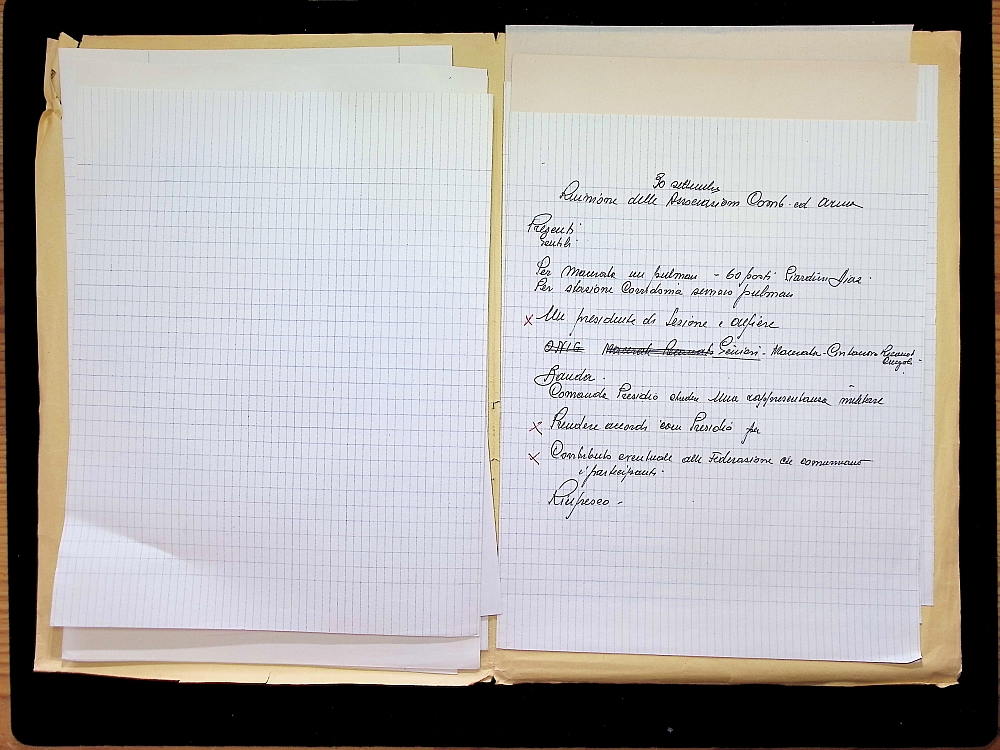 30 settembre
Riunione delle Associazioni Comb. ed arma
Presenti
Gentili
Per Macerata un pulman - 60 posti Giardini Diaz.
Per stazione Corridonia servizio pulman
Un presidente di Sezione e alfiere
Macerata - Civitanova Recanati
Banda.
Comando Presidio chiedere Una rappresentanza militare
X Prendere accordi con Presidio per
X Contributo eventuale alle Federazione che comunicano
i partecipanti.
Rinfresco -